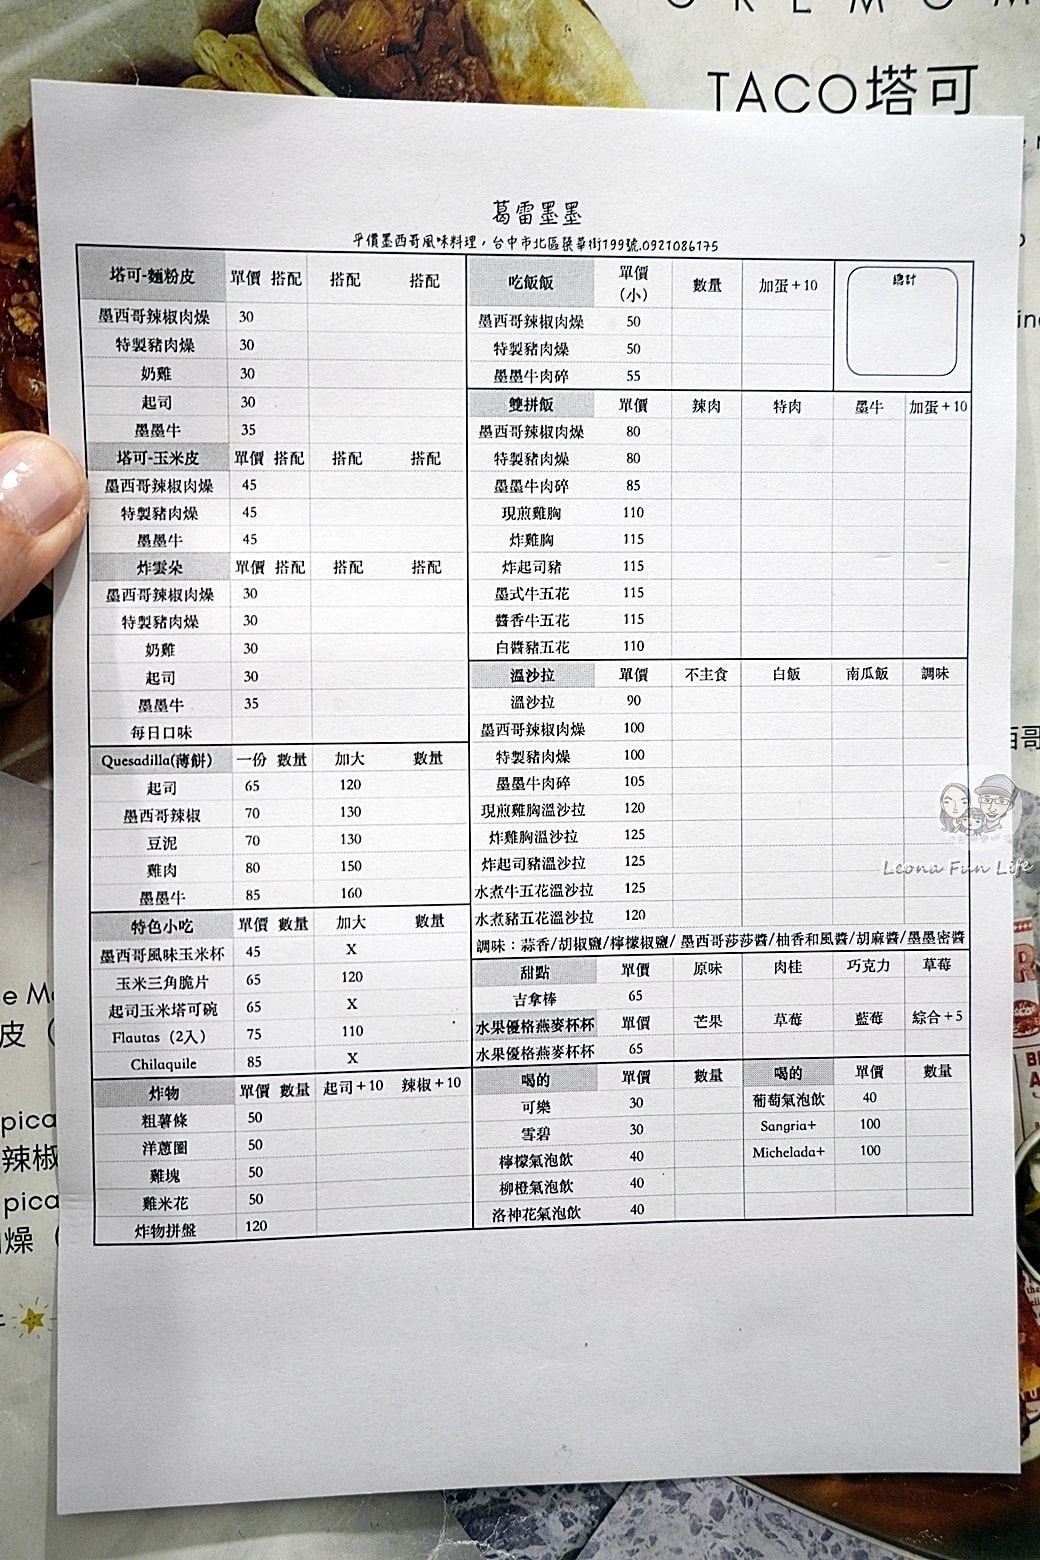 TACO塔可
葛雷墨墨
平價墨西哥風味料理，台中市北區築華街199號.0921086175
塔可-麵粉皮 單價 搭配 搭配 搭配
墨西哥辣椒肉燥 30
特製豬肉燥 30
奶雞 30
起司 30
墨墨牛 35
塔可-玉米皮 單價 搭配 搭配 搭配
墨西哥辣椒肉燥 45
特製豬肉燥 45
墨墨牛 45
炸雲朵 單價 搭配 搭配 搭配
墨西哥辣椒肉燥 30
特製豬肉燥 30
奶雞 30
起司 30
墨墨牛 35
每日口味
Quesadilla(薄餅) 一份 數量 加大 數量
起司 65 120
墨西哥辣椒 70 130
豆泥 70 130
雞肉 80 150
墨墨牛 85 160
特色小吃 單價 數量 加大 數量
墨西哥風味玉米杯 45 X
玉米三角脆片 65 120
起司玉米塔可碗 65 X
Flautas（2入） 75 110
Chilaquile 85 X
炸物 單價 數量 起司+10 辣椒+10
粗薯條 50
洋蔥圈 50
雞塊 50
雞米花 50
炸物拼盤 120
吃飯飯 單價（小） 數量 加蛋+10 總計
墨西哥辣椒肉燥 50
特製豬肉燥 50
墨墨牛肉碎 55
雙拼飯 單價 辣肉 特肉 墨牛 加蛋+10
墨西哥辣椒肉燥 80
特製豬肉燥 80
墨墨牛肉碎 85
現煎雞胸 110
炸雞胸 115
炸起司豬 115
墨式牛五花 115
醬香牛五花 115
白醬豬五花 110
溫沙拉 單價 不主食 白飯 南瓜飯 調味
溫沙拉 90
墨西哥辣椒肉燥 100
特製豬肉燥 100
墨墨牛肉碎 105
現煎雞胸溫沙拉 120
炸雞胸溫沙拉 125
炸起司豬溫沙拉 125
水煮牛五花溫沙拉 125
水煮豬五花溫沙拉 120
調味：蒜香/胡椒鹽/檸檬椒鹽/ 墨西哥莎莎醬/柚香和風醬/胡麻醬/墨墨密醬
甜點 單價 原味 肉桂 巧克力 草莓
吉拿棒 65
水果優格燕麥杯杯 單價 芒果 草莓 藍莓 綜合+5
水果優格燕麥杯杯 65
喝的 單價 數量 喝的 單價 數量
可樂 30 葡萄氣泡飲 40
雪碧 30 Sangria+ 100
檸檬氣泡飲 40 Michelada+ 100
柳橙氣泡飲 40
洛神花氣泡飲 40
Leona Fun Life